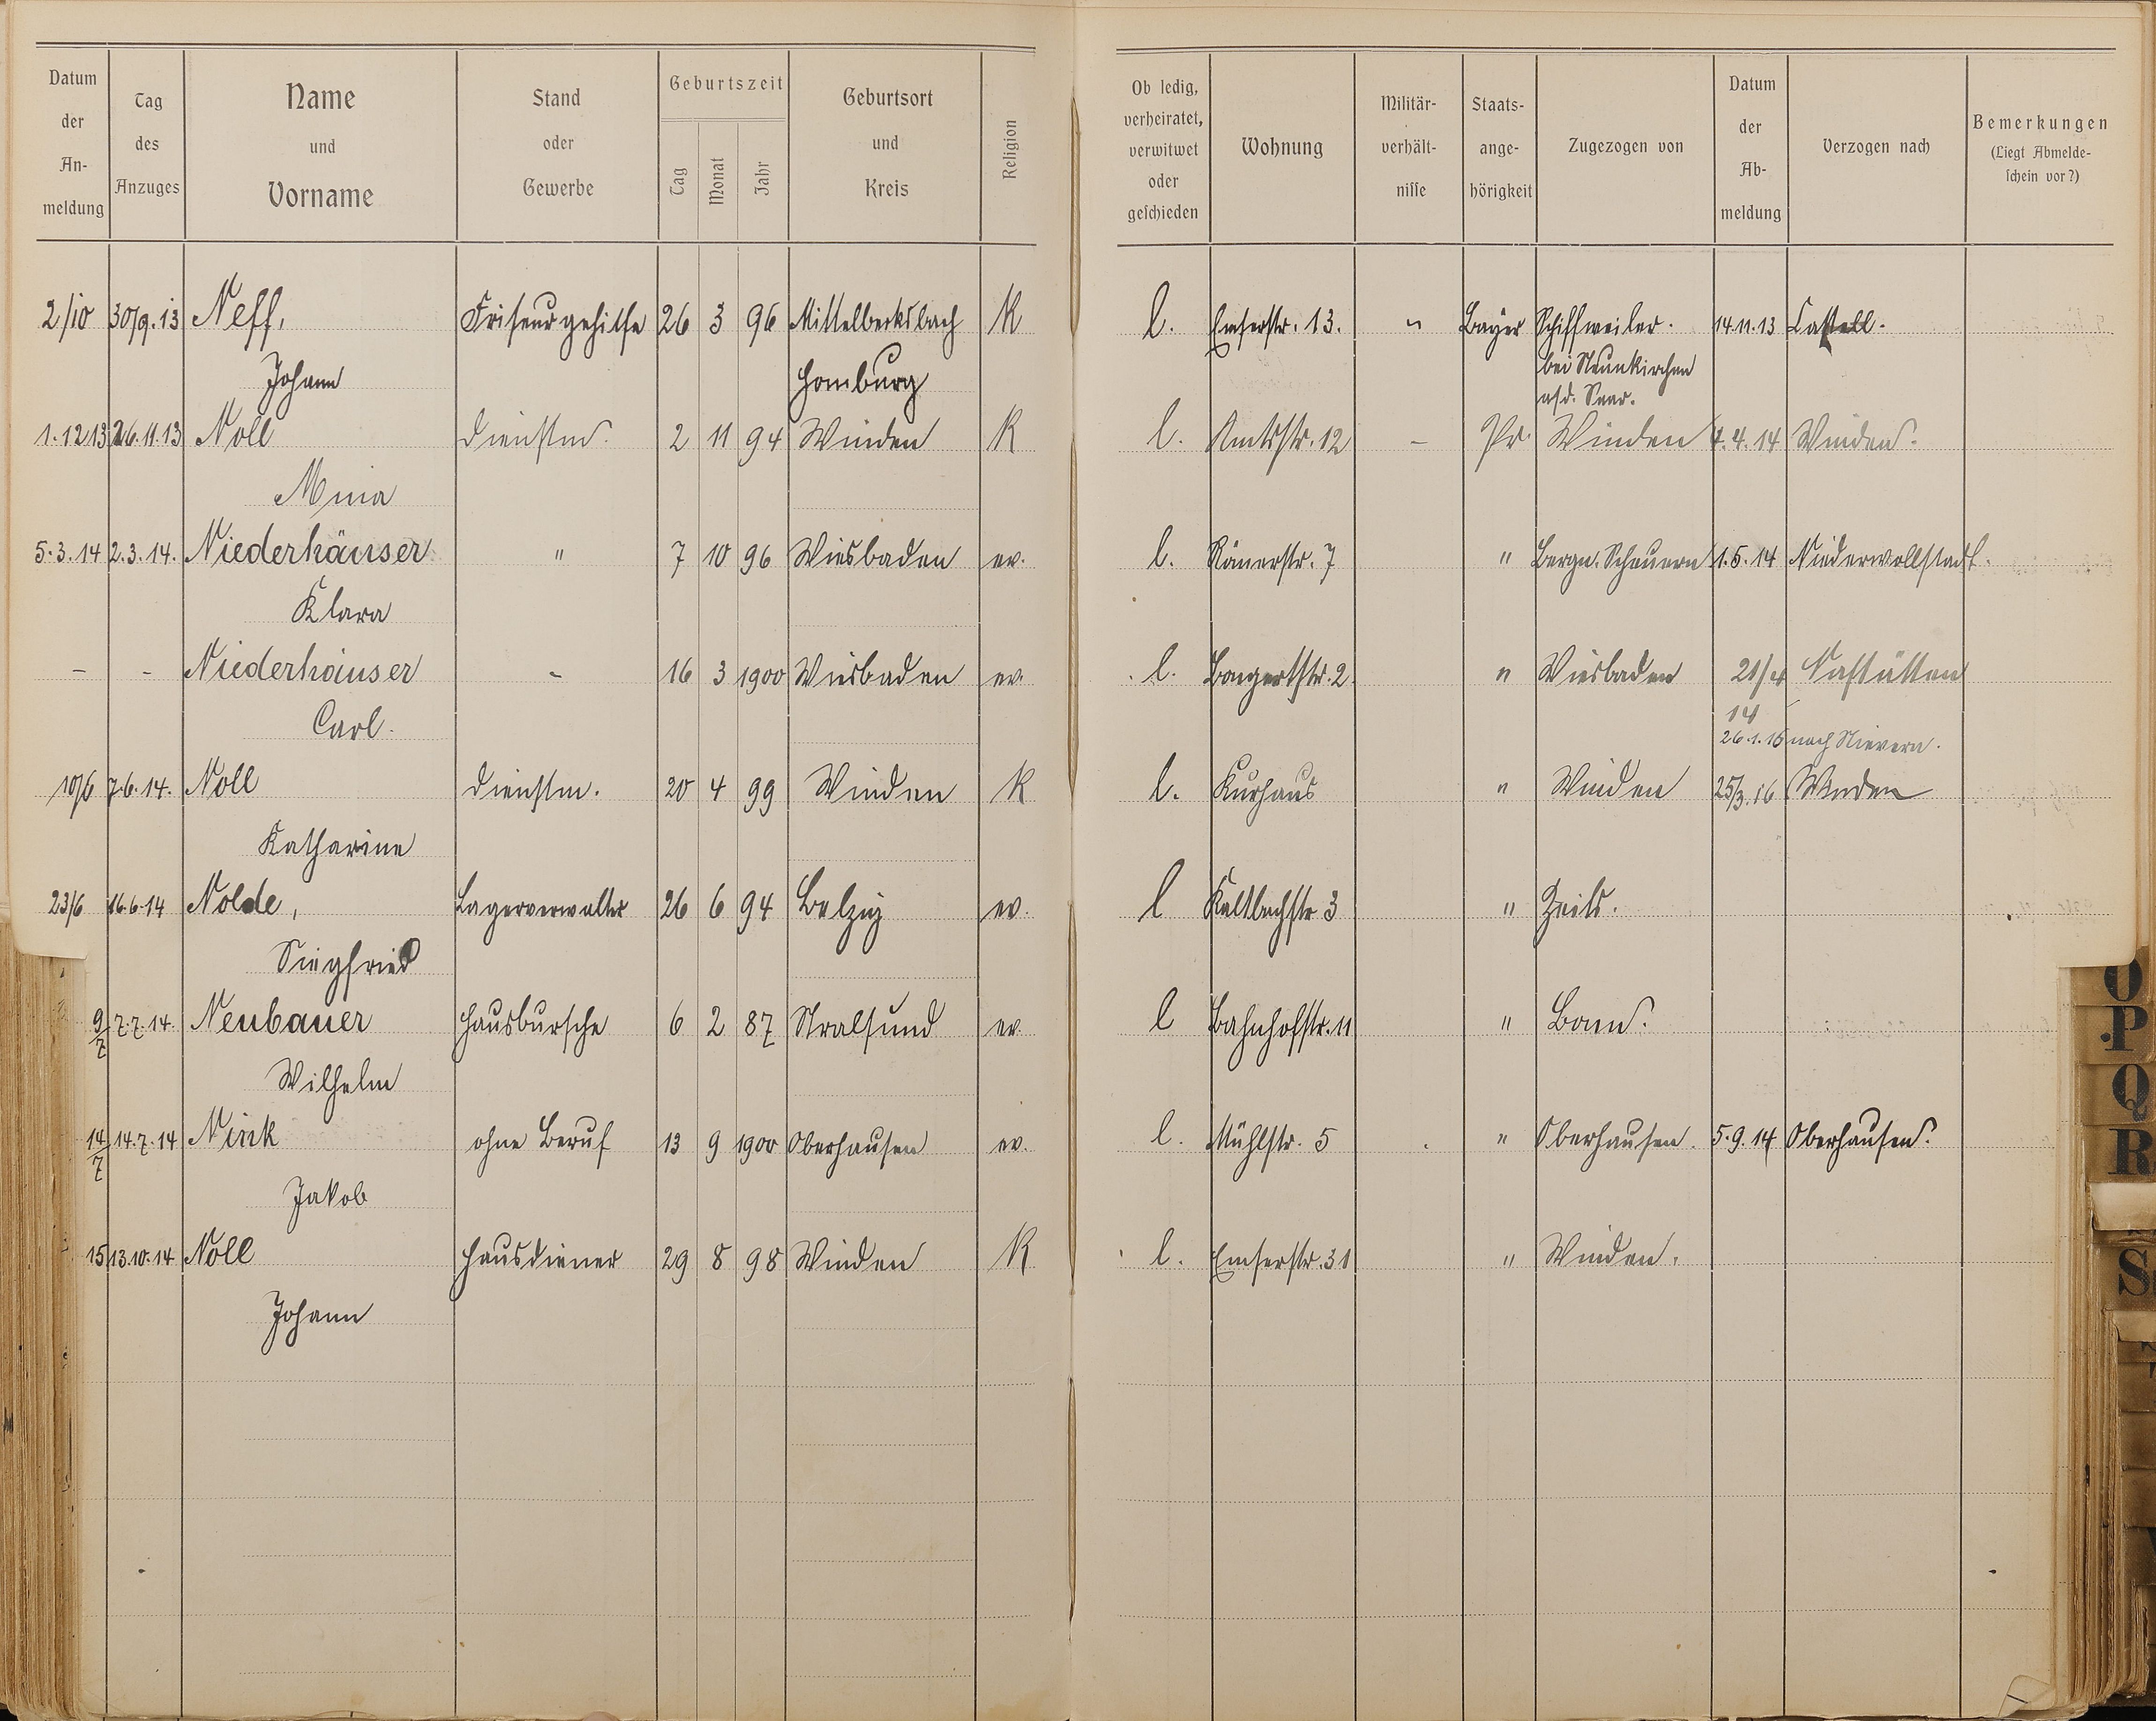 Datum der An- meldung | Tag des Anzuges | Name und Vorname | Stand oder Gewerbe | Geburtszeit Tag Monat Jahr | Geburtsort und Kreis | Religion | Ob ledig, verheiratet, verwitwet oder geschieden | Wohnung | Militär- verhält- nisse | Staats- ange- hörigkeit | Zugezogen von | Datum der Ab- meldung | Verzogen nach | Bemerkungen (Liegt Abmelde- schein vor?)
2/10 30/9.13 Neff, Friseurgehilfe 26 3 96 Mittelbecksbach K l. Emserstr. 13. " Bayer Schiffweiler. 14.11.13 Castell.
Johann Homburg bei Neunkirchen
a/d. Saar.
1.12 13 26.11.13 Noll Dienstm. 2 11 94 Winden K l. Amtsstr. 12 – Pr. Winden 4.4.14 Winden.
Mina
5.3.14 2.3.14. Niederhäuser " 7 10 96 Wiesbaden ev. l. Römerstr. 7 " Bergn. Scheuern 1.5.14 Niederwollstadt.
Klara
– – Niederhäuser – 16 3 1900 Wiesbaden ev. l. Bongertstr. 2. " Wiesbaden 21/4 Nastätten
Carl. 14
26.1.15 nach Nievern.
10/6 7.6.14. Noll Dienstm. 20 4 99 Winden K l. Kurhaus " Winden 25/3.16 Winden
Katharine
23/6 16.6.14 Nolde, Lagerverwalter 26 6 94 Belzig ev. l Kaltbachstr 3 " Zeitz.
Siegfried
9/7 7.7.14. Neubauer Hausbursche 6 2 87 Stralsund ev. l Bahnhofstr. 11 " Bonn.
Wilhelm
14/7 14.7.14 Nink ohne Beruf 13 9 1900 Oberhausen ev. l. Mühlstr. 5 " Oberhausen. 5.9.14 Oberhausen.
Jakob
15 13.10.14 Noll Hausdiener 29 8 98 Winden K l. Emserstr. 31 " Winden.
Johann
O
P
Q
R
S